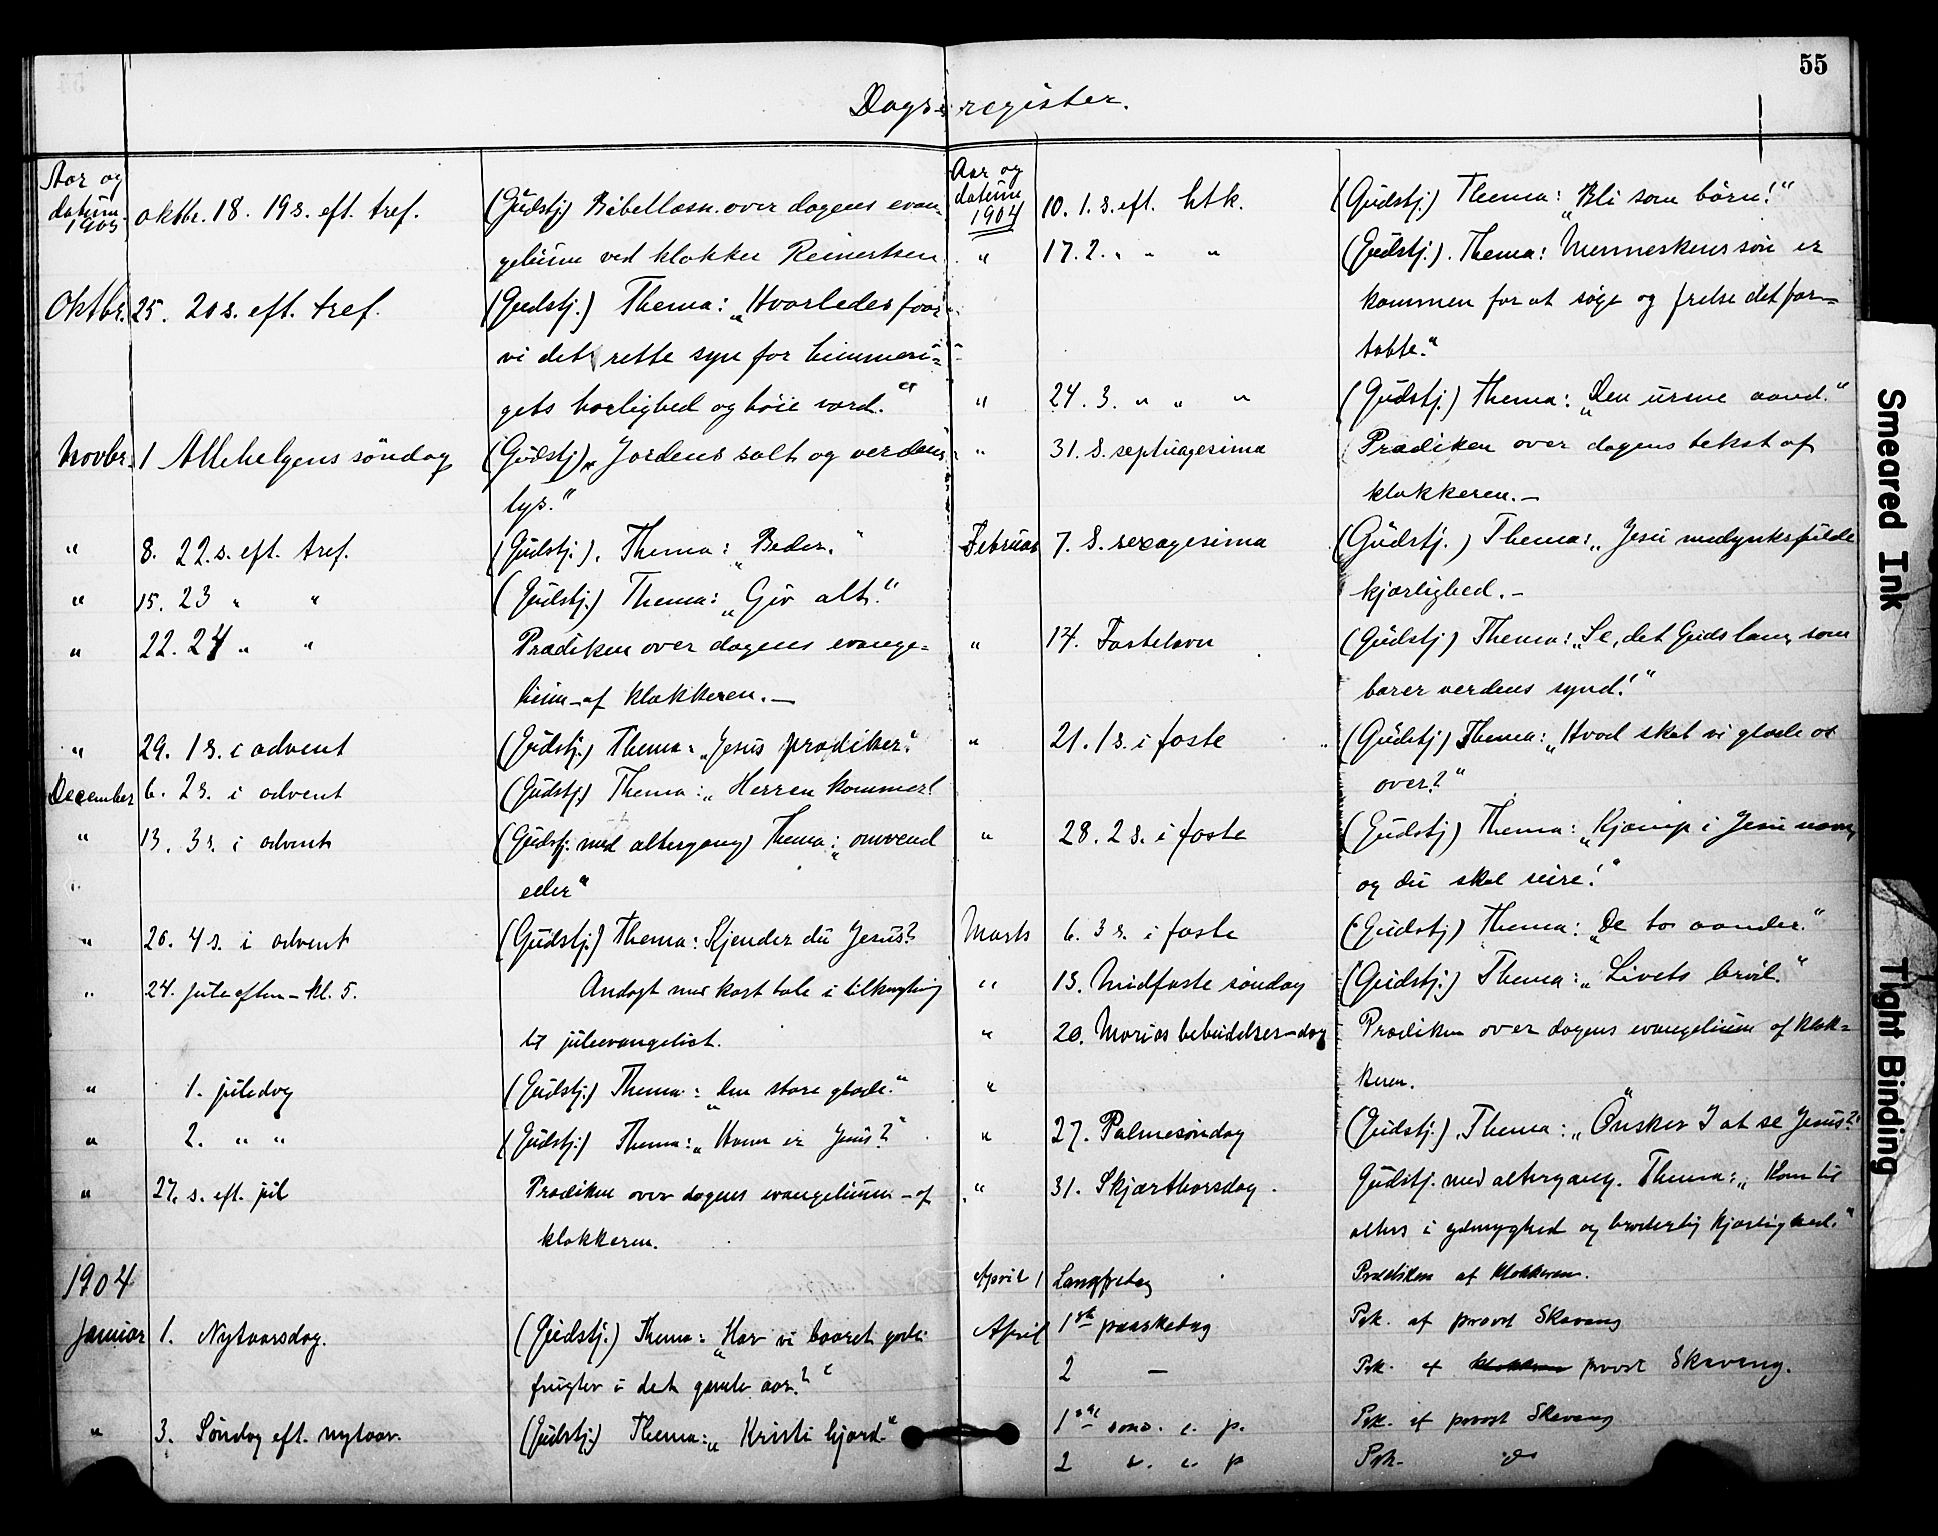 55
Dags-register.
Aar og
datum.
1903
oktbr. 18. 19 s. eft. tref. (Gudstj) Bibellæsn. over dagens evan-
gelium ved klokker Reinertsen
Oktbr. 25. 20 s. eft. tref. (Gudstj.) Thema: „Hvorledes faar
vi det rette syn for himmeri-
gets herlighed og høie værd.“
Novbr. 1 Allehelgens søndag (Gudstj) „Jordens salt og verdens
lys.“
" 8. 22. s. eft. tref. (Gudstj.). Thema: „Beder.“
" 15. 23 " " (Gudstj.) Thema: „Giv alt.“
" 22. 24 " " Prædiken over dagens evange-
lium - af klokkeren. —
" 29. 1 s. i advent (Gudstj.) Thema: „Jesus prædiker“.
December 6. 2 s. i advent (Gudstj.) Thema: „Herren kommer!
" 13. 3 s. i advent (Gudstj. med altergang) Thema: „omvend
eder“
" 20. 4 s. i advent (Gudstj.) Thema: Kjender du Jesus?
" 24. juleaften - kl. 5. Andagt med kort tale i tilknytning
til juleevangeliet.
" 1. juledag (Gudstj.) Thema: „den store glæde.“
" 2. " " (Gudstj.) Thema: „Hvem er Jesus?“
" 27. s. eft. jul Prædiken over dagens evangelium - af
klokkeren.
1904
Januar 1. Nytaarsdag. (Gudstj.) Thema: „Har vi baaret gode
frugter i det gamle aar?“
" 3. Søndag eft. nytaar. (Gudstj.) Thema: „Kristi hjord“
Aar og
datum
1904
10. 1. s. eft. htk. (Gudstj.) Thema: „Bli som børn!“
" 17. 2. " " " (Gudstj.). Thema: Menneskens søn er
kommen for at søge og frelse det for-
tabte.“
" 24. 3. " " " (Gudstj.) Thema: „Den urene aand.“
" 31. S. septuagesima Prædiken over dagens tekst af
klokkeren. —
Februar 7. S. sexagesima (Gudstj.) Thema: „Jesu medynksfulde
kjærlighed. —
" 14. Fastelavn (Gudstj) Thema: „Se, det Guds lam, som
bærer verdens synd!“
" 21. 1 s. i faste (Gudstj) Thema: „Hvad skal vi glæde os
over?“
" 28. 2 s. i faste (Gudstj) Thema: „Kjæmp i Jesu navn,
og du skal seire!“
Marts 6. 3 s. i faste (Gudstj) Thema: „De to aander.“
" 13. Midfaste søndag (Gudstj.) Thema: „Livets brød.“
" 20. Marias bebudelses-dag Prædiken over dagens evangelium af klok-
" keren.
" 27. Palmesøndag (Gudstj.). Thema: „Ønsker I at se Jesus?“
" 31. Skjærthorsdag. Gudstj. med altergang. Thema: „Kom til
alters i ydmyghed og broderlig kjærlighed.“
April 1 Langfredag Prædiken af klokkeren.
April 1ste paaskedag Prk. af provst Skavang
2 — Prk. af provst Skavang.
1ste sønd. e. p. Prk. af provst Skavang
2 " e. p Prk. do
Smeared Ink
Tight Binding